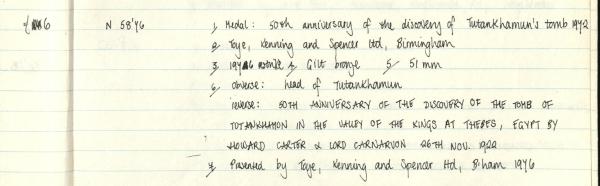 6 N 58'76 1, Medal: 50th anniversary of the discovery of Tutankhamun's tomb 1972
2, Toye, Kenning and Spencer Ltd, Birmingham
3, 1976 4, Gilt bronze 5, 51 mm
6, obverse: head of Tutankhamun
reverse: 50TH ANNIVERSARY OF THE DISCOVERY OF THE TOMB OF
TUTANKHAMON IN THE VALLEY OF THE KINGS AT THEBES, EGYPT BY
HOWARD CARTER & LORD CARNARVON 26TH NOV. 1922
Presented by Toye, Kenning and Spencer Ltd, B'ham 1976